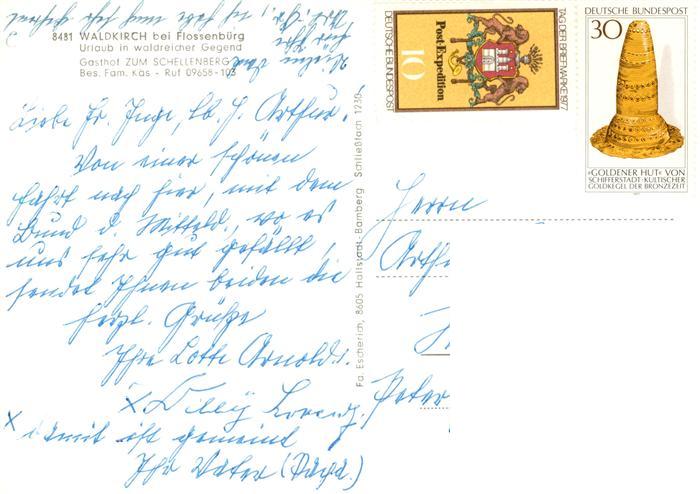 8481 WALDKIRCH bei Flossenbürg
Urlaub in waldreicher Gegend
Gasthof ZUM SCHELLENBERG
Bes. Fam. Käs - Ruf 09658-103
Liebe Fr. Inge, lb. H. Arthur.
Von einer schönen
Fahrt nach hier, mit dem
Bund d. Mitteld., wo es
uns sehr gut gefällt,
sendet Ihnen beiden die
herzl. Grüße
Ihre Lotte Arnold.
x Willy Lorenz.
x damit ist gemeint
Ihr Vater (Papa.)
Fa. Escherich, 8605 Hallstadt-Bamberg Schließfach 1236
DEUTSCHE BUNDESPOST
10
Post-Expedition
TAG DER BRIEFMARKE 1977
DEUTSCHE BUNDESPOST
30
»GOLDENER HUT« VON
SCHIFFERSTADT · KULTISCHER
GOLDKEGEL DER BRONZEZEIT
Herrn
Arth
Peter